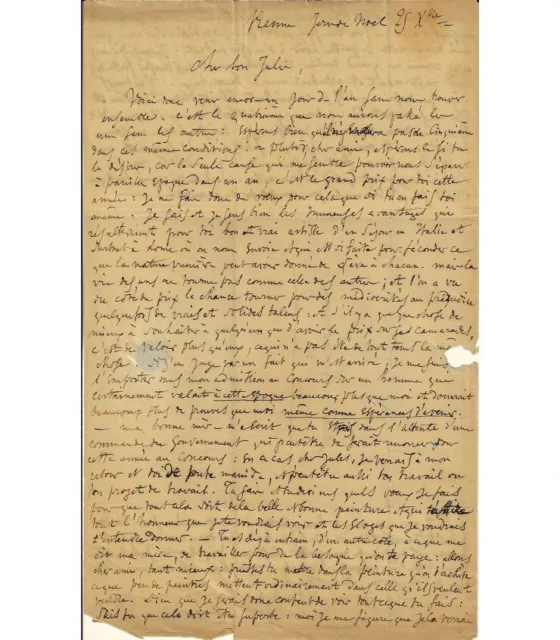 Vienne Jour de Noel 25 Xbre
Cher bon Jules,
Voici donc venir encore un jour de l'an sans nous trouver
ensemble. c'est le quatrième que nous aurons passé les
uns sans les autres: Espérons bien qu'il n'y en aura pas de cinquième
dans ces mêmes conditions: ou plutôt, cher ami, espérons le si tu
le désires, car la seule cause qui me semble pouvoir nous séparer
à pareille Epoque dans un an, c'est le grand prix pour toi cette
année: Je ne fais donc de vœux pour cela que si tu en fais toi
même. Je sais et je sens bien les immenses avantages que
résulteraient pour toi bon et vrai artiste d'un séjour en Italie et
surtout à Rome où on nous envoie et qui est si faite pour féconder ce
que la nature première peut avoir donné de sève à chacun. mais la
vie des uns ne tourne pas comme celle des autres; et l'on a vu
du côté du prix la chance tourner pour des médiocrités au préjudice
quelquefois de vrais et solides talens: et s'il y a quelque chose de
mieux à souhaiter à quelqu'un que d'avoir le prix sur ses camarades,
c'est de valoir plus qu'eux, ce qui n'a pas été de tout tems la même
chose. J'en juge par un fait qui m'est arrivé; Je me suis
l'emporter mon admission au Concours sur un homme que
certainement valait à cette époque beaucoup plus que moi et donnait
beaucoup plus de preuves que moi même comme Espérances d'avenir.
— ma bonne mère m'écrit que tu es dans l'attente d'une
commande du Gouvernement qui peut être te ferait renoncer pour
cette année au Concours: En ce cas cher Jules, Je verrais à mon
retour et toi et peut être aussi ton travail ou
ton projet de travail. Tu sais et devines quels vœux Je fais
pour que tout cela soit de la belle et bonne peinture et qui
tout l'honneur que je te voudrais voir et les Eloges que Je voudrais
t'entendre donner. — Tu es déjà en train, d'un autre côté, à ce que me
dit ma mère, de travailler pour de la besogne qu'on te paye: allons
cher ami, tant mieux: puisses tu mettre dans la peinture qu'on t'achète
ce que peu de peintres mettent ordinairement dans celle qu'ils veulent
vendre. Dieu que je serais donc content de voir tout ce que tu fais:
Sais tu que cela doit être superbe: moi je me figure que je la verrai